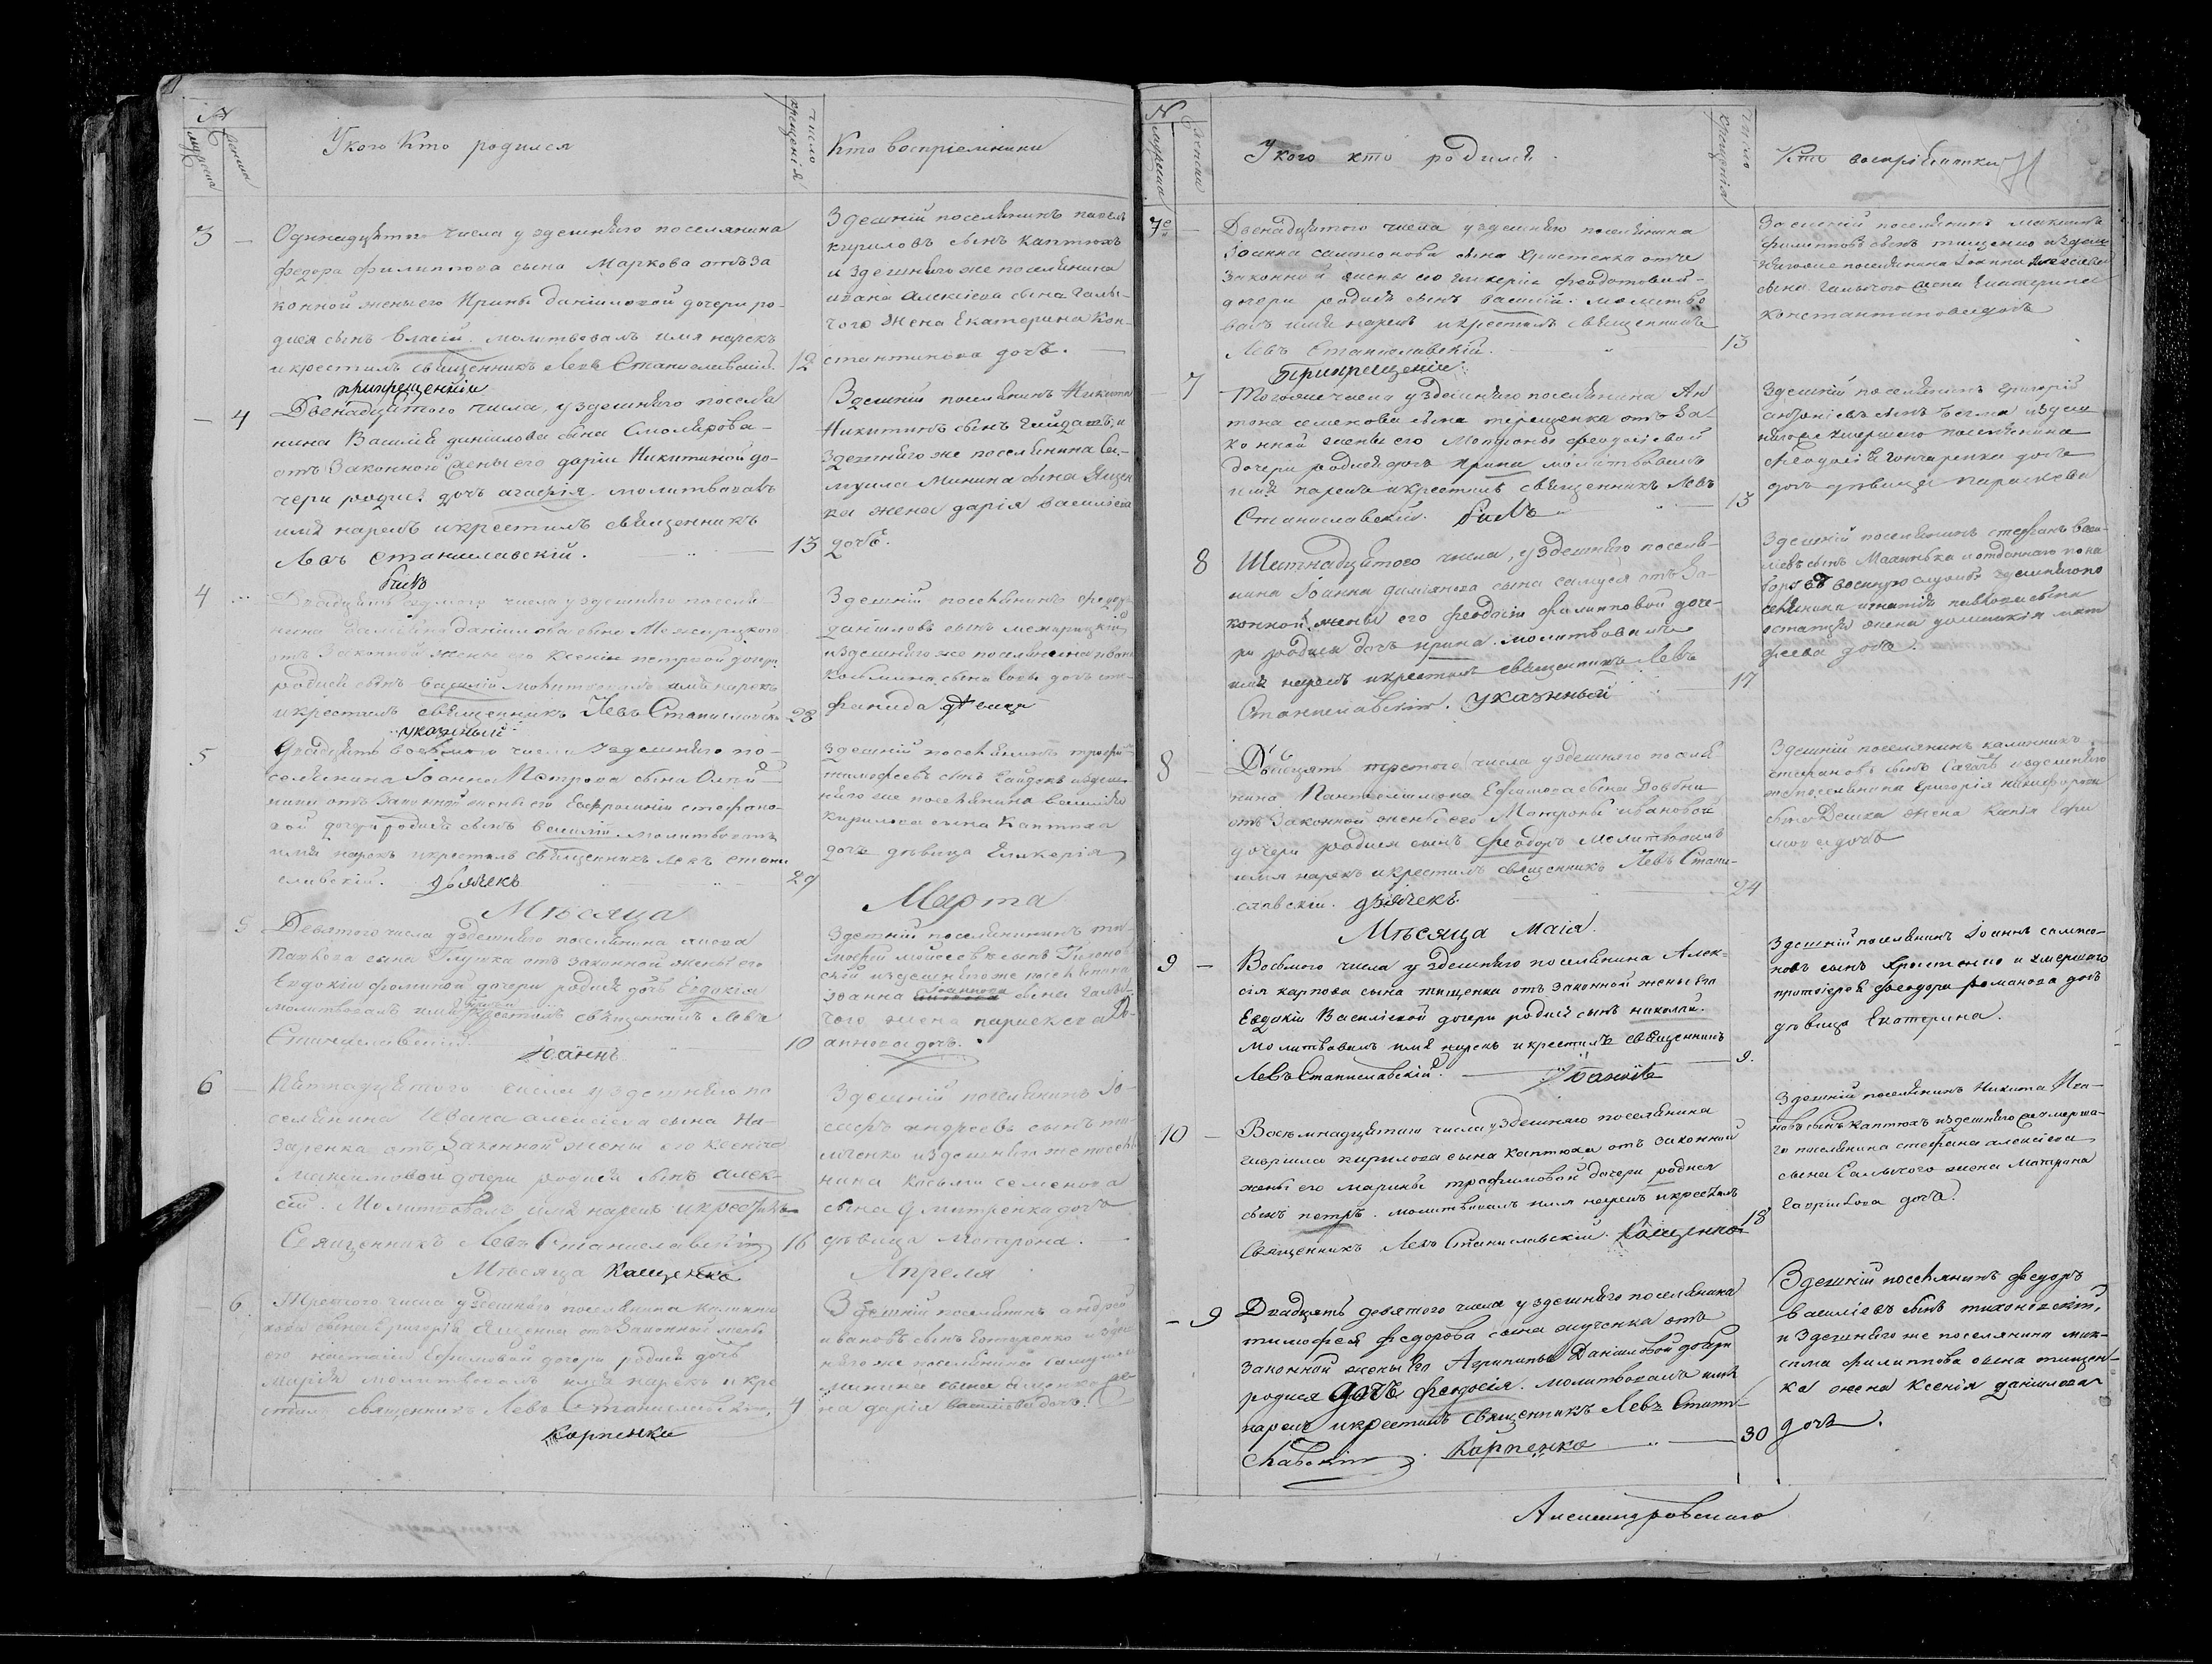 №
мужеск
женск
У кого Кто родился
число
крещенія
Кто воспріемники
3
Одинадцятого числа у здешняго поселянина
федора филиппова сына Маркова отъ за
конной жены его Ирины даніиловой дочери ро-
дися сынъ власій. молитвовалъ имя нарекъ
и крестилъ священникъ Левъ Станиславскій
12
Здешній поселянинъ павелъ
кириловъ сынъ каптюхъ
и здешняго же поселянина
ивана алексіева сына галы-
чого жена Екатерина Кон-
стантинова дочь.
4
Двенадцятого числа, у здешняго поселя
нина Василія даніилова сына Смолярова-
отъ Законной жены его даріи Никитиной до-
чери родися дочь агафія молитвовалъ
имя нарекъ и крестилъ священникъ
Левъ Станиславскій.
13
Здешній поселянинъ Никита
Никитинъ сынъ и
здешняго же поселянина Са-
муила Минина сына Ященк
ка жена дарія василіева
дочь.
4
Двадцять седмого числа у здешняго поселя-
нина даніилова сына Межирицкого
отъ Законной жены его Ксеніи петровой дочери
родися сынъ василій молитвовалъ имя нарекъ
и крестилъ священникъ Левъ Станиславскій
28
Здешній поселянинъ федоръ
даніиловъ сынъ межирицкій
и здешняго же поселянина ивана
козьмина сына дочь сте-
фанида девица
5
Двадцять восьмого числа У здешняго по-
селянина Іоанна Петрова сына
отъ Законной жены его Евфросиніи стефано-
вой дочери родися сынъ василій молитвовалъ
имя нарекъ и крестилъ священникъ Левъ Стани
славскій. дьячекъ
29
Здешній поселянинъ трофи
тимофеевъ сынъ и здеш-
няго же поселянина василія
Кирилова сына Каптюха
дочь девица Гликерія
Мѣсяца Марта
5
Девятого числа у здешняго поселянина
Павлова сына Глушка отъ законной жены его
Евдокіи фоминой дочери родися дочь Евдокія
молитвовалъ имя крестилъ священникъ Левъ
Станиславскій.
Іоаннъ
10
Здешній поселянинъ ти
мофей мойсеевъ сынъ Тихонов
скій и здешняго же поселянина
іоанна Іоаннова сына галы
чого жена параскева
аннова дочь.
6
Пятнадцятого числа у здешняго по
селянина Ивана алексіева сына На-
заренка отъ Законной жены его Ксеніи
максимовой дочери родися сынъ алек-
сій. Молитвовалъ имя нарекъ и крестилъ
Священникъ Левъ Станиславскій
16
Здешній поселянинъ Іо
сифъ андреевъ сынъ
и здешняго же поселя
нина Косьмы семенова
сына дмитренка дочь
девица Матрона.
Мѣсяца Кащенко Апреля
6
Третого числа у здешняго поселянина
сына Григорія Ященка отъ Законной жены
его настасіи Ефимовой дочери родися дочь
марія молитвовалъ имя нарекъ и кре
стилъ священникъ Левъ Станиславскій
Карпенко
4
Здешній поселянинъ андрей
ивановъ сынъ и здеш
няго же поселянина самуила
минина сына ященка же-
на дарія василіева дочь.
№
мужеска
женска
У кого кто родился.
число
крещенія
Кто воспріемники
7
Двенадцятого числа у здешняго поселянина
Іоанна сампсонова сына христенка отъ
Законной жены его гликеріи федотовой
дочери родися сынъ василій. молитво
валъ имя нарекъ и крестилъ священникъ
Левъ Станиславскій.
13
Здешній поселянинъ максимъ
филипповъ сынъ тищенко и здеш
няго же поселянина Іоанна Алексіева
сына галычого жена Екатерина
константиновадочь
7
Того же числа у здешняго поселянина Ан
тона семенова сына терещенка отъ За-
конной жены его Матроны феодосіевой
дочери родися дочь ирина молитвовалъ
имя нарекъ и крестилъ священникъ Левъ
Станиславскій.
13
Здешній поселянинъ григорій
антоніевъ сынъ и здеш
няго же умершего поселянина
феодосія гончаренка дочь
дочь девица параскева
8
Шестнадцятого числа, у здешняго поселя-
нина Іоанна даміянова сына самуся отъ За-
конной жены его феодосіи филипповой доче-
ри родися дочь ирина. молитвовалъ
имя нарекъ и крестилъ священникъ Левъ
Станиславскій. указнный
17
Здешній поселянинъ стефанъ васи-
ліевъ сынъ и отданнаго по на
бору въ военную службу здешняго по
селянина игнатія павлова сына
жена
дочь.
8
Двадцять третого числа у здешняго поселя
нина Пантелимона Ефимова сына Довбни
отъ Законной жены его Матроны ивановой
дочери родися сынъ феодоръ молитвовалъ
имя нарекъ и крестилъ священникъ Левъ Стани-
славскій. дьячекъ
24
Здешній поселянинъ калинникъ
стефановъ сынъ Сагачъ и здешняго
же поселянина григорія никифорова
сына жена
дочь
Мѣсяца Маія
9
Восьмого числа у здешняго поселянина Алек-
сія карпова сына тищенка отъ законной жены его
Евдокіи Василіевой дочери родися сынъ николай.
Молитвовалъ имя нарекъ и крестилъ священникъ
Левъ Станиславскій. Іоаннъ
9.
Здешній поселянинъ Іоаннъ сампсо-
новъ сынъ христенко и умершого
протоіерея феодора романова дочь
девица Екатерина.
10
Восемнадцятого числа у здешняго поселянина
гавріила кирилова сына каптюха отъ законной
жены его марины трофимовой дочери родися
сынъ петръ. молитвовалъ имя нарекъ и крестилъ
Священникъ Левъ Станиславскій. Кащенко
18
Здешній поселянинъ Никита Ива-
новъ сынъ каптюхъ и здешняго же умерша-
го поселянина стефана алексіева
сына Галычого жена Матрона
гавріилова дочь.
9
Двадцять девятого числа у здешняго поселянина
тимофея федорова сына отъ
законной жены Его Агрипины Даніиловой дочери
родися дочь феодосія. молитвовалъ имя
нарекъ и крестилъ священникъ Левъ Стани-
славскій. Карпенко
30
Здешній поселянинъ федоръ
василіевъ сынъ тихоновскій,
и здешняго же поселянина мак-
сима филиппова сына тищен-
ка жена Ксенія даніилова
дочь.
Александровского